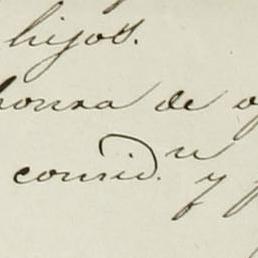 hijos.
honra de
consid.n y